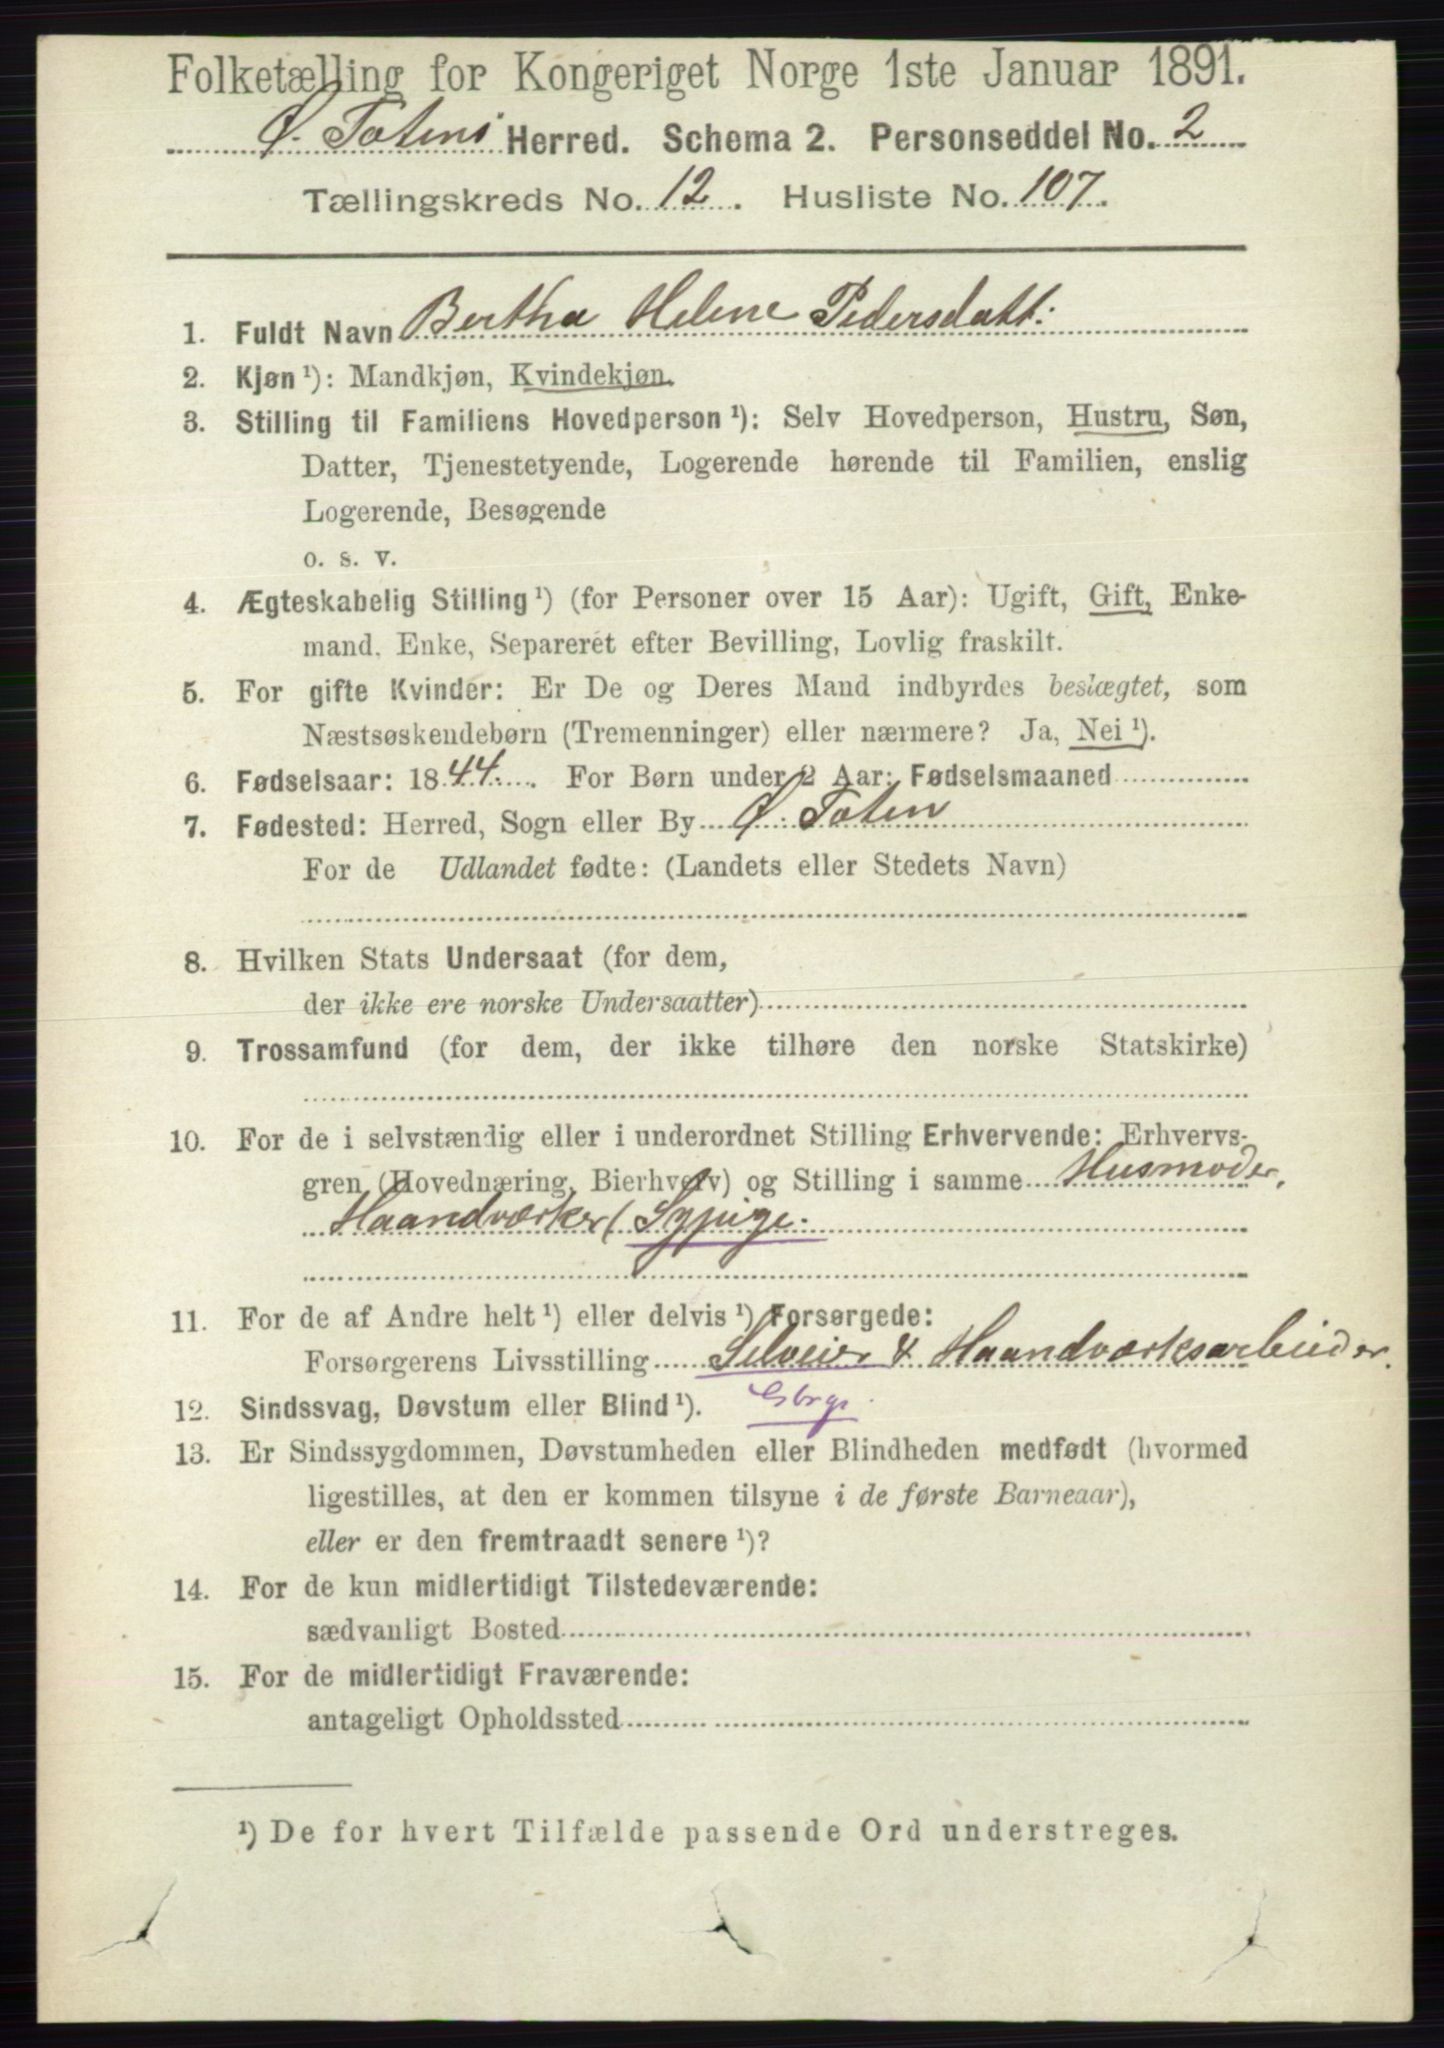 Folketælling for Kongeriget Norge 1ste Januar 1891.
Ø. Totens Herred. Schema 2. Personseddel No. 2
Tællingskreds No. 12. Husliste No. 107.
1. Fuldt Navn Bertha Helene Pedersdatt:
2. Kjøn ¹): Mandkjøn, Kvindekjøn.
3. Stilling til Familiens Hovedperson ¹): Selv Hovedperson, Hustru, Søn,
Datter, Tjenestetyende, Logerende hørende til Familien, enslig
Logerende, Besøgende
o. s. v.
4. Ægteskabelig Stilling ¹) (for Personer over 15 Aar): Ugift, Gift, Enke-
mand, Enke, Separeret efter Bevilling, Lovlig fraskilt.
5. For gifte Kvinder: Er De og Deres Mand indbyrdes beslægtet, som
Næstsøskendebørn (Tremenninger) eller nærmere? Ja, Nei ¹).
6. Fødselsaar: 1844. For Børn under 2 Aar: Fødselsmaaned
7. Fødested: Herred, Sogn eller By Ø. Toten
For de Udlandet fødte: (Landets eller Stedets Navn)
8. Hvilken Stats Undersaat (for dem,
der ikke ere norske Undersaatter)
9. Trossamfund (for dem, der ikke tilhøre den norske Statskirke)
10. For de i selvstændig eller i underordnet Stilling Erhvervende: Erhvervs-
gren (Hovednæring, Bierhverv) og Stilling i samme Husmoder,
Haandværker (Sypige.
11. For de af Andre helt ¹) eller delvis ¹) Forsørgede:
Forsørgerens Livsstilling Selveier & Haandværksarbeider.
12. Sindssvag, Døvstum eller Blind ¹).
13. Er Sindssygdommen, Døvstumheden eller Blindheden medfødt (hvormed
ligestilles, at den er kommen tilsyne i de første Barneaar),
eller er den fremtraadt senere ¹)?
14. For de kun midlertidigt Tilstedeværende:
sædvanligt Bosted
15. For de midlertidigt Fraværende:
antageligt Opholdssted
¹) De for hvert Tilfælde passende Ord understreges.